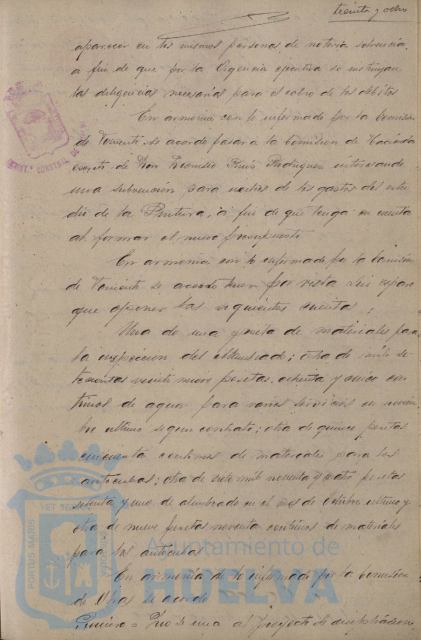 treinta y ocho
aparecer en los mismos personas de notoria solvencia,
a fin de que por la Agencia ejecutiva se instruyan
las diligencias necesarias para el cobro de los débitos
En armonía con lo informado por la Comisión
de Fomento, se acordó pasara a la Comisión de Hacienda
escrito de Don Ruiz Rodriguez interesando
una subvención para de los gastos del estu
dio de la Pintura, a fin de que tenga en cuenta
al formar el nuevo presupuesto
En armonía con lo informado por la Comisión
de Fomento se acordó por vista sin repa
que oponer las siguientes cuentas:
Una de una peseta de materiales para
la inspeccion del alumbrado; otra de mil
veinte nueve pesetas ochenta y cinco cen
timos de agua para varios servicios en
bre ultimo segun contrato; otra de quince pesetas
cincuenta centimos de materiales para las
; otra de siete mil noventa y cuatro pesetas
setenta y uno de alumbrado en el mes de Octubre ultimo y
otra de nueve pesetas noventa centimos de materiales
para las
En armonía de lo informado por la comision
de Obras se acordó
Primero = al proyecto de
Ayuntamiento de
HUELVA